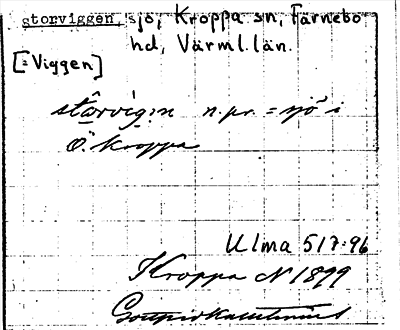 storviggen, sjö, Kroppa sn, Färnebo
hd, Värml. län.
[= Viggen]
stårvigən n.pr. = sjö i
Ö. Kroppa
Ulma 517:96
Kroppa N 1899